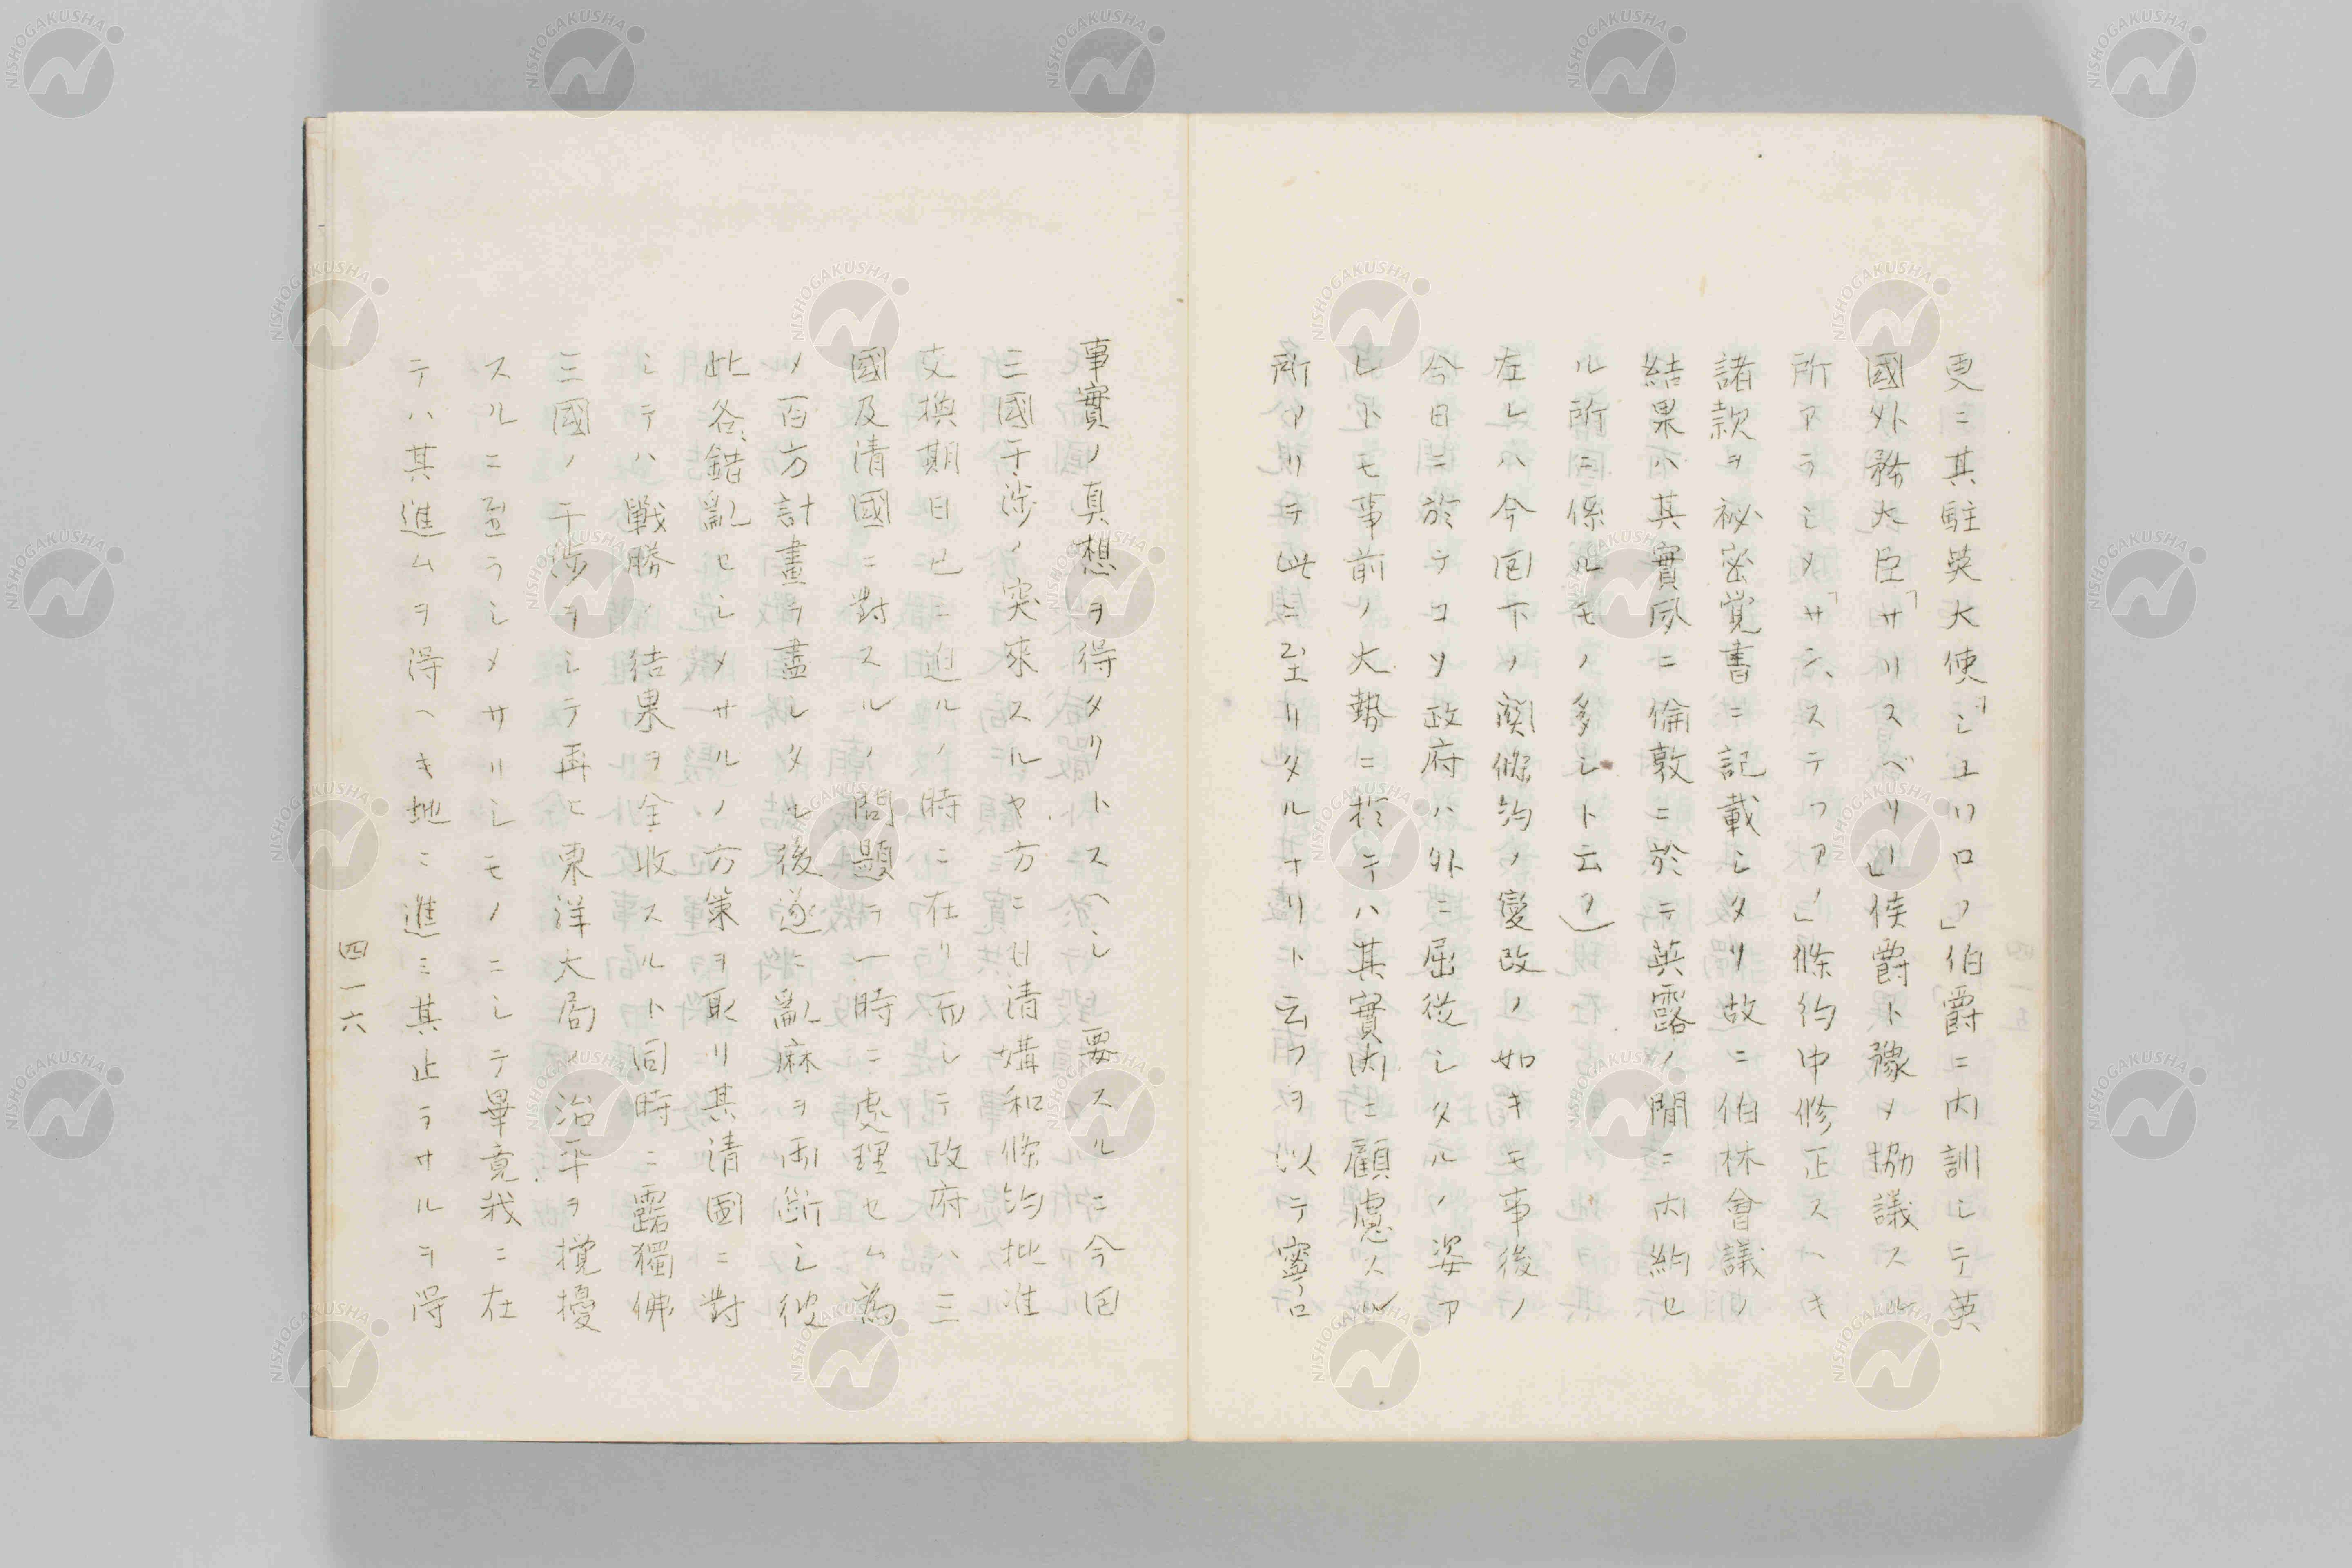 更ニ其駐英大使「シユワロフ」伯爵ニ内訓シテ英
國外務大臣「サリスベリー」侯爵ト豫メ協議スル
所アラシメ「サン、ステフアノ」條約中修正スヘキ
諸款ヲ祕密覚書ニ記載シタリ故ニ伯林會議ノ
結果ハ其實夙ニ倫敦ニ於テ英露ノ間ニ内約セ
ル所ニ係ルモノ多シト云フ)
左レハ今回下ノ関條約ノ變改ノ如キモ事後ノ
今日ニ於テコソ政府ハ外ニ屈從シタルノ姿ア
レトモ事前ノ大勢ニ於テハ其實内ニ顧慮スル
所アリテ此ニ至リタルナリト云フヲ以テ寧ロ
事實ノ真想ヲ得タリトスヘシ 要スルニ今回
三國干渉ノ突來スルヤ方ニ日清媾和條約批准
交換期日已ニ迫ルノ時ニ在リ而シテ政府ハ三
國及清國ニ對スルノ問題ヲ一時ニ處理セム為
メ百方計畫ヲ盡シタル後遂ニ亂麻ヲ両断シ彼
此各、錯亂セシメサルノ方策ヲ取リ其清國ニ對
シテハ戰勝ノ結果ヲ全收スルト同時ニ露獨佛
三國ノ干渉ヲシテ再ヒ東洋大局ノ治平ヲ攪擾
スルニ至ラシメサリシモノニシテ畢竟我ニ在
テハ其進ムヲ得ヘキ地ニ進ミ其止ラサルヲ得
四一六
NISHOGAKUSHA